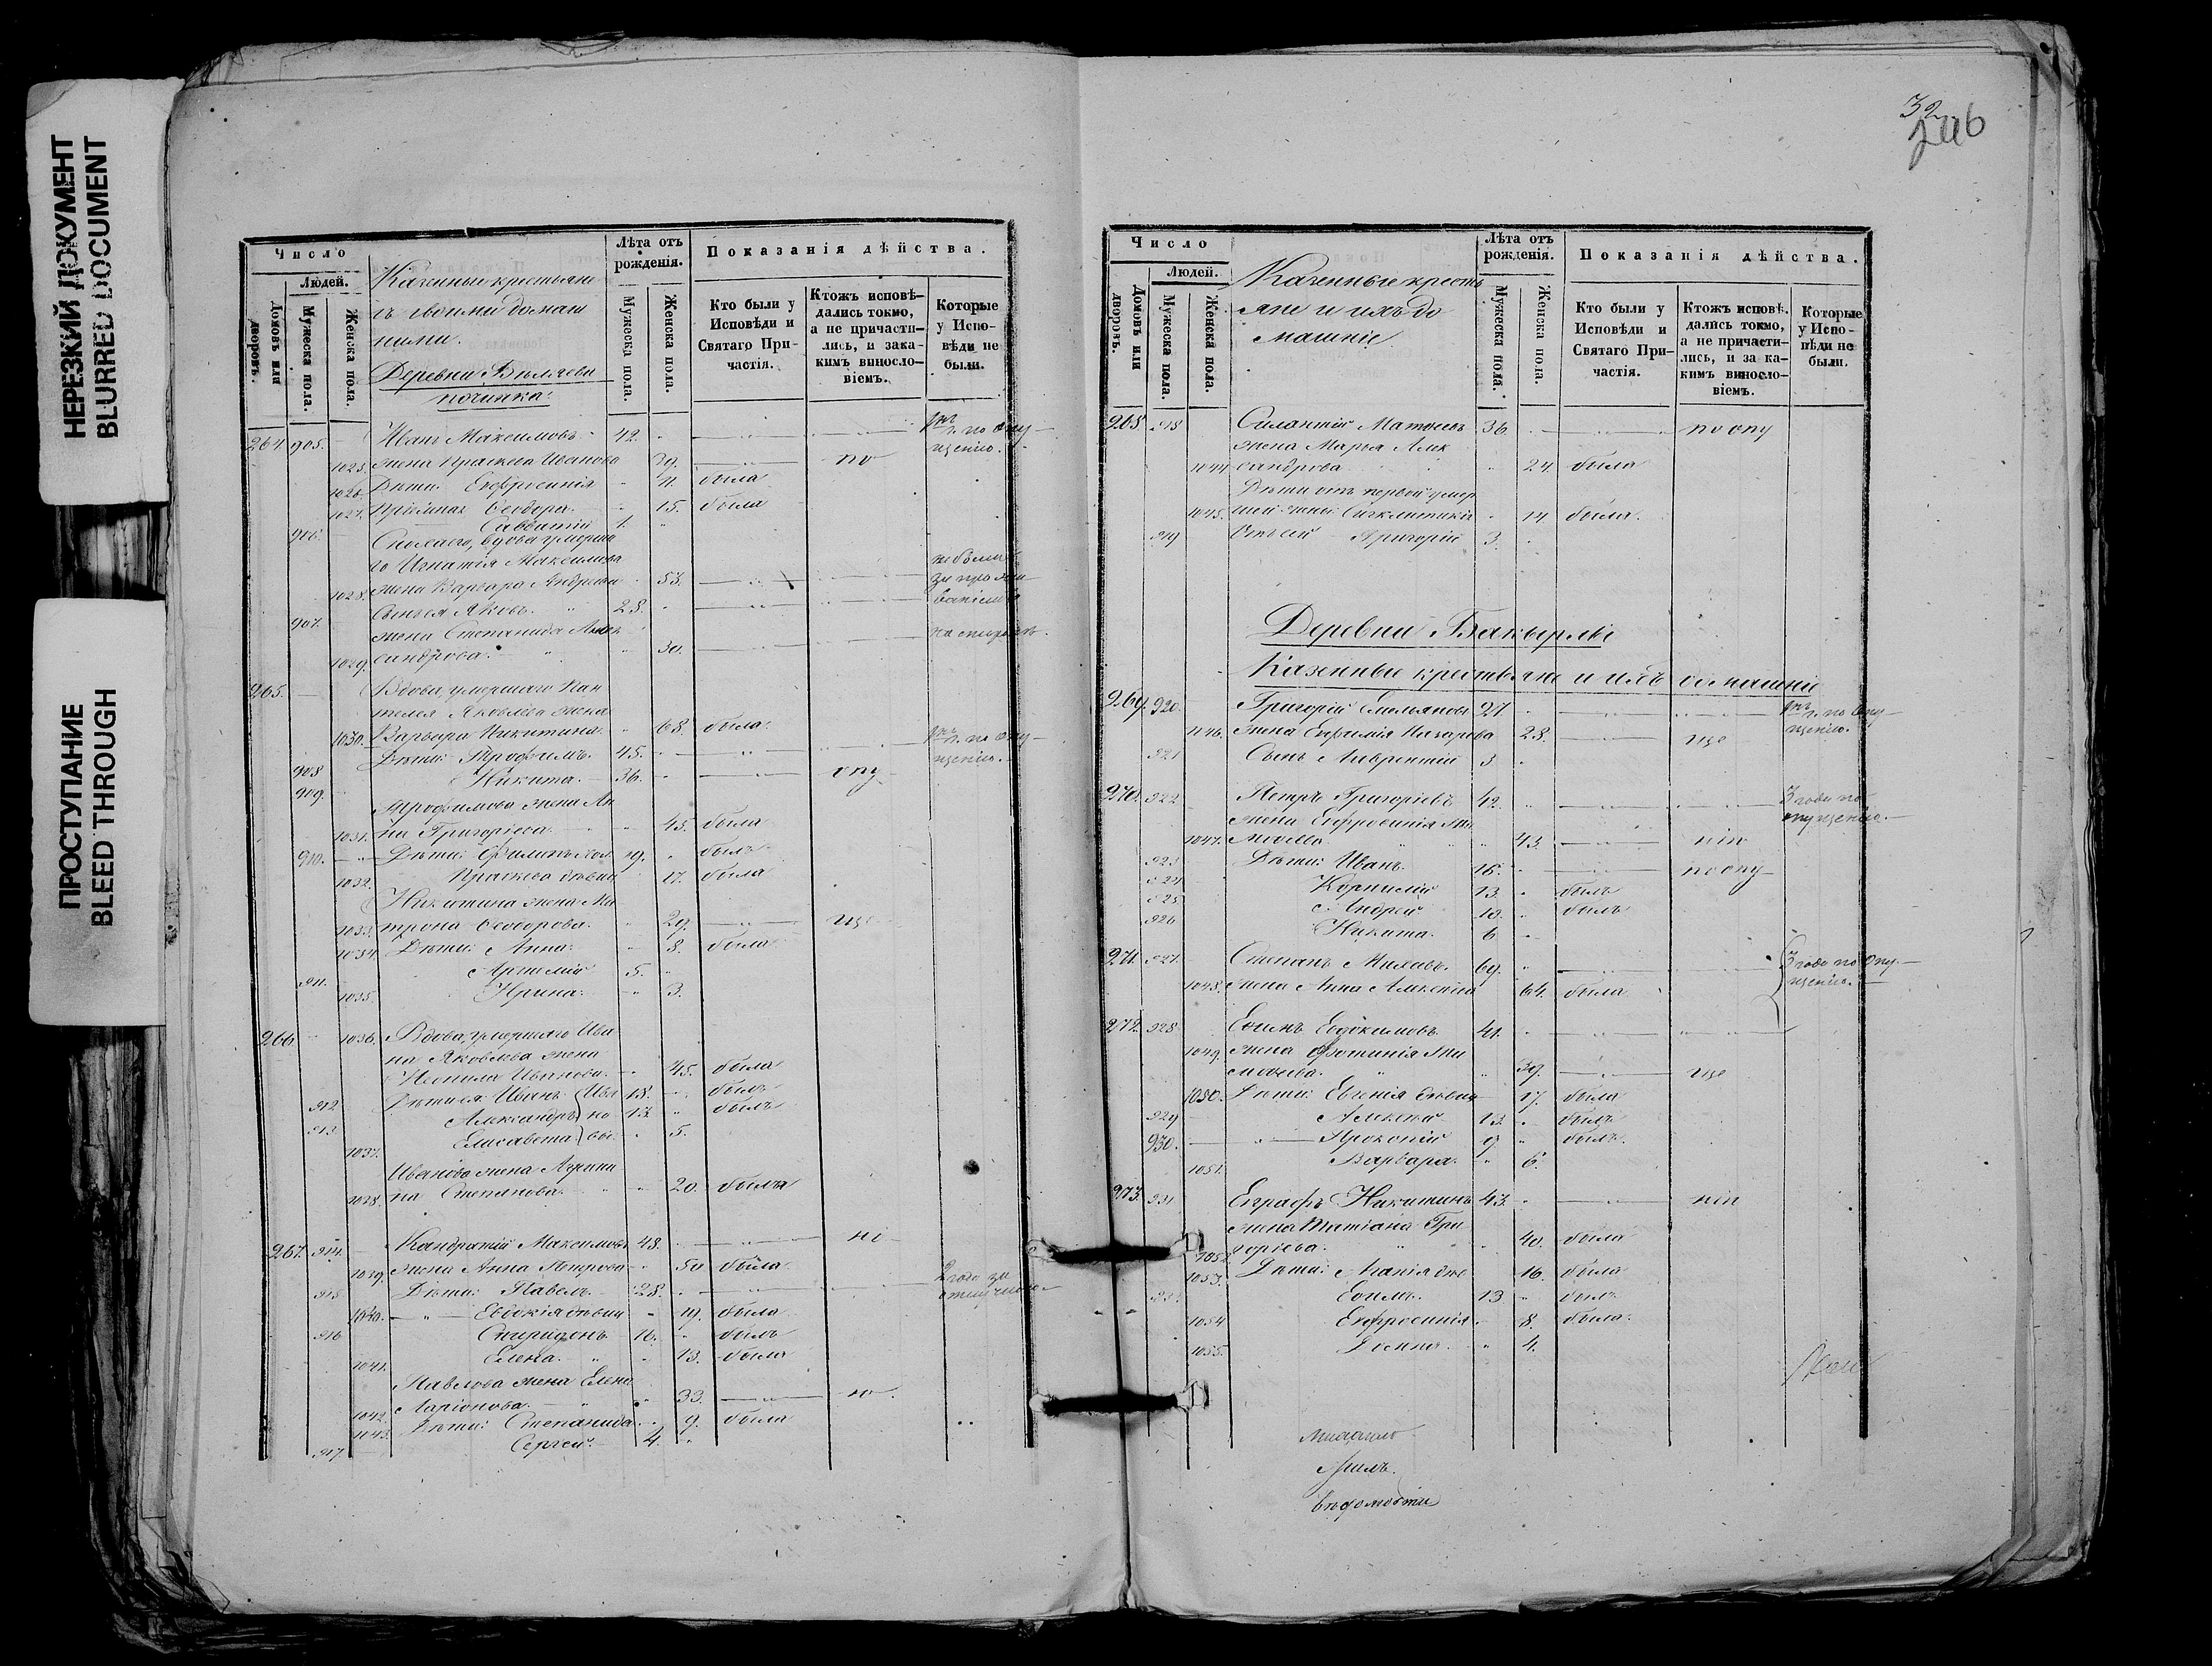 НЕРЕЗКИЙ ДОКУМЕНТ
BLURRED DOCUMENT
ПРОСТУПАНИЕ
BLEED THROUGH
Число
Людей.
Домовъ или дворовъ.
Мужеска пола.
Женска пола.
Казенные крестьяне
съ своими домаш
ними.
Деревни Бѣляева
починка:
Лѣта отъ рожденія.
Мужеска пола.
Женска пола.
Показанія дѣйства.
Кто были у Исповѣди и Святаго Причастія.
Ктожъ исповѣдались токмо, а не причастились, и за какимъ винословіемъ.
Которые у Исповѣди не были.
264. 905. Иванъ Максимовъ 42. по опу
щенію.
1025. жена Праскева Иванова 39. по
1026. Дѣти: Евфросинія была
1027. Ѳеодора. 15. была
906. Савватій 1.
вдова умерша
го Игнатія Максимова не былъ
1028. жена Варвара Андреева 53.
907. Яковъ. 28.
жена Степанида Алек
1029. сандрова. 30.
265. Вдова, умершаго Пан
телея Яковлева жена
1030. Варвара Никитина. 68. была
908 Дѣти: Трофимъ. 45. по опу
щенію.
909. Никита. 36. опу
Трофимова жена Ан
1031. на Григорьева. 45. была
910. Дѣти: Филиппъ 19. былъ
1032. Праскева дѣвица 17. была
Никитина жена Ма
1033. трона Ѳеодорова. 29. ще
1034. Дѣти: Анна. 8. была
911. Артемій 5.
1035. Ирина. 3.
266. 1036. Вдова, умершаго Ива
на Яковлева жена
Неонила Иванова. 45. была
912 Иванъ 18. былъ
913 Александръ 13. былъ
1037. Елисавета 5.
Иванова жена Агрипи
1038. на Степанова. 20. была
267. 914. Кандратій Максимовъ 48. ні
1039. жена Анна Петрова 50 была
915 Дѣти: Павелъ. 28. 2 года за
1040. Евдокія дѣвица 19. была
916 Спиридонъ 16. былъ
1041. Елена. 13. была
Павлова жена Елена
1042. Ларіонова. 33. ю.
1043. Дѣти: Степанида 9. была
917. Сергей. 4.
32
Число
Людей.
Домовъ или дворовъ.
Мужеска пола.
Женска пола.
Казенные кресть
яне и ихъ до
машніе
Лѣта отъ рожденія.
Мужеска пола.
Женска пола.
Показанія дѣйства.
Кто были у Исповѣди и Святаго Причастія.
Ктожъ исповѣдались токмо, а не причастились, и за какимъ винословіемъ.
Которые у Исповѣди не были.
268. 918 Силантій 36. по опу
жена Марья Алек
1044 сандрова 24. была
Дѣти отъ первой умер
1045. шей жены: Сигклитикія 14. была.
919 Григорій 3.
Деревни Бакырлы
Казенные крестьяне и ихъ домашніе
269. 920. Григорій Емельяновъ 27. по опу
щенію.
1046. жена Евфимія Назарова 28. ще
921 Сынъ Лаврентій 3
270. 922. Петръ Григорьевъ 42. 3 года по
опущенію.
жена Евфросинія
1047. 43. нію
923 Дѣти: Иванъ. 16. по опу
924 Корнилій 13. былъ
925 Андрей 10. былъ
926 Никита. 6
271. 927. Степанъ 69. 3 года по опу
щенію.
1048. жена Анна Алексѣева 64. была
272. 928 Евдокимовъ 41.
1049. жена Фотинія
39. ще
1050. Дѣти: Евгенія дѣвица 17. была
929 Алексѣй 13. былъ
930. Прокопій 9 былъ.
1051. Варвара. 6.
273. 931 Евграфъ Никитинъ 43. нію
жена Татіана Гри
1052 горіева. 40. была
1053. Дѣти: 16. была
13 былъ
1054 Евфросинія. 8. была.
1055. 4.